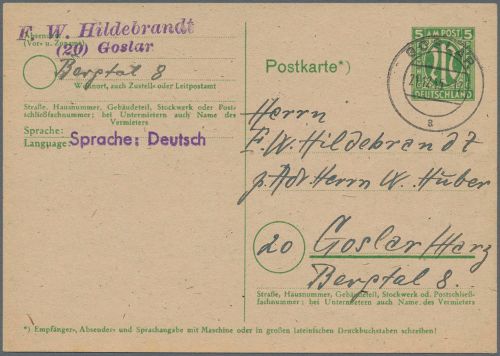 F. W. Hildebrandt
Absender:
(Vor- u. Zuname)
(20) Goslar
Bergtal 8
Wohnort, auch Zustell- oder Leitpostamt
Straße, Hausnummer, Gebäudeteil, Stockwerk oder Post-
schließfachnummer; bei Untermietern auch Name des
Vermieters
Sprache:
Language:
Sprache: Deutsch
5 AM POST 5
DEUTSCHLAND
a
Postkarte*)
Herrn
F. W. Hildebrandt
z. Adr. Herrn W. Huber
20 Goslar/Harz
Bergtal 8.
Straße, Hausnummer, Gebäudeteil, Stockwerk od. Postschließ-
fachnummer; bei Untermietern auch Name des Vermieters
*) Empfänger-, Absender- und Sprachangabe mit Maschine oder in großen lateinischen Druckbuchstaben schreiben!